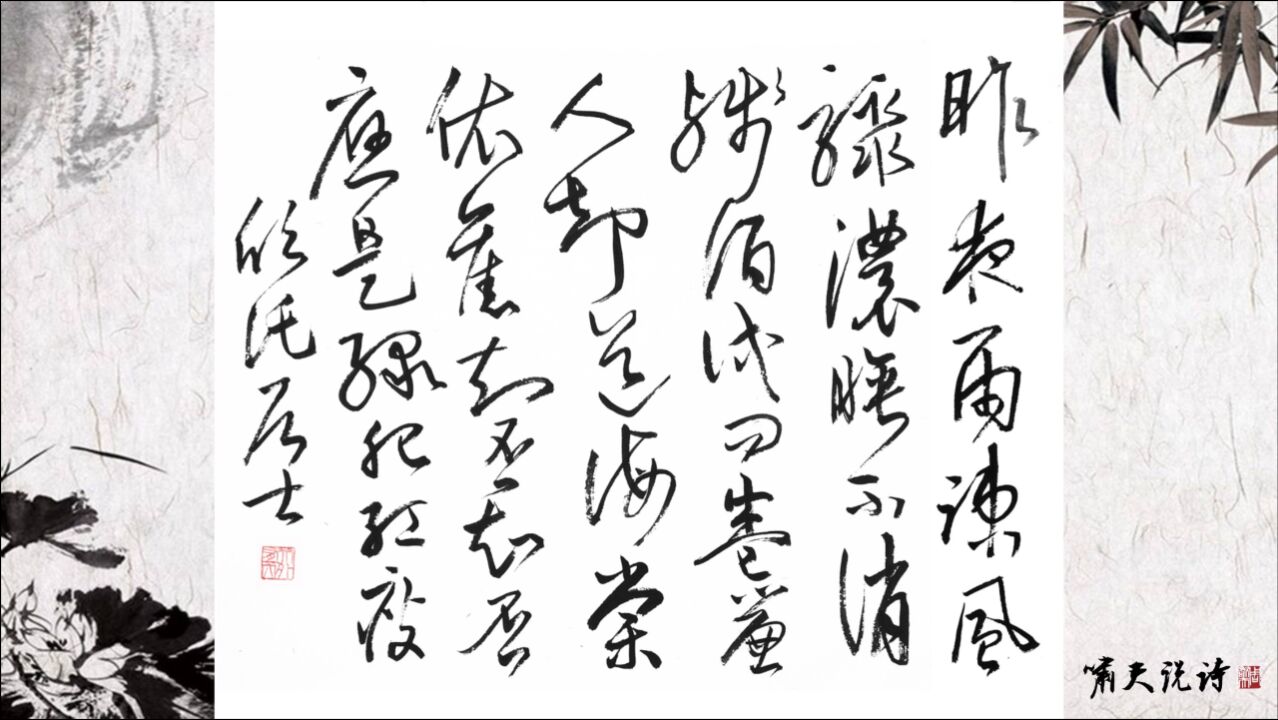 昨夜雨疎風
驟濃睡不消
殘酒試問卷簾
人却道海棠
依舊知否知否
應是綠肥紅瘦
欣托居士
嘯天说诗